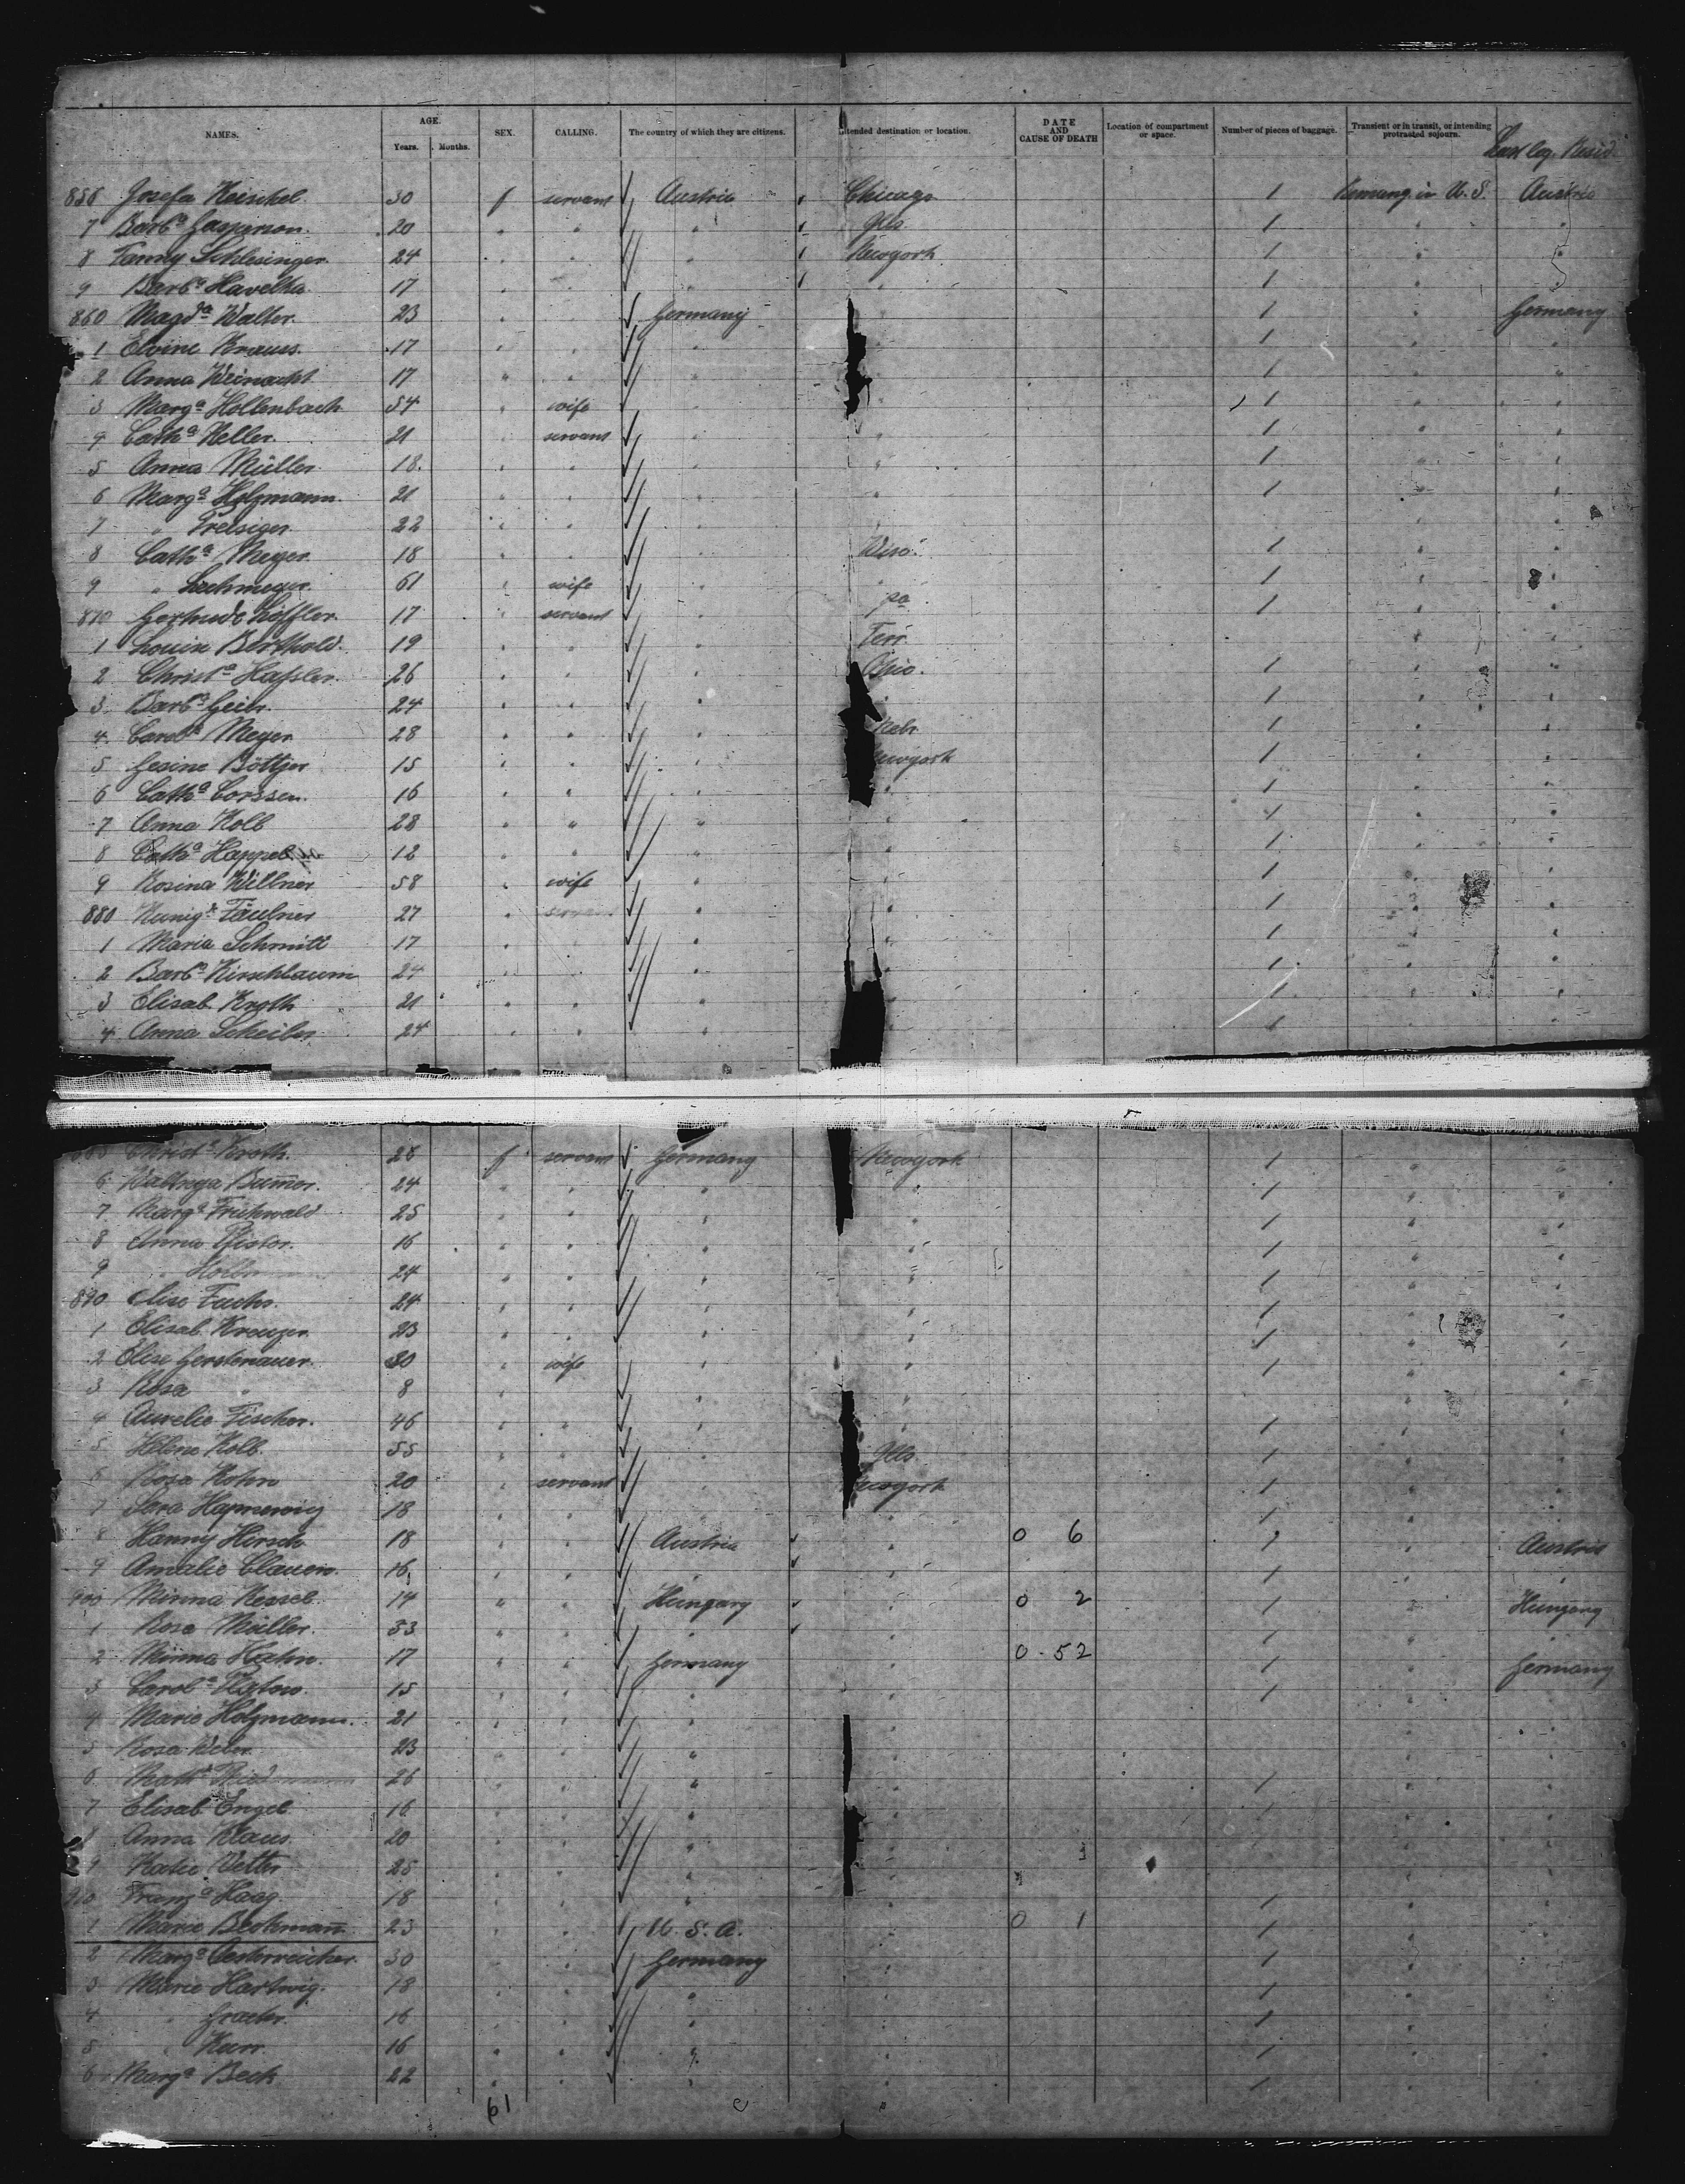 NAMES. AGE. Years. Months. SEX. CALLING. The country of which they are citizens. Intended destination or location. DATE AND CAUSE OF DEATH Location of compartment or space. Number of pieces of baggage. Transient or in transit, or intending protracted sojourn. Last leg. Resid.
856 Josefa Heischel. 30 f servant Austria Chicago 1 in U.S. Austria
7 Barbª 20 " " " Ills. 1 " "
8 Fanny Schlesinger. 24 " " " Newyork 1 " "
9 Barbª Havelka 17 " " " " 1 " "
860 Magdª Walter. 23 " " Germany " 1 " Germany
1 Elvine Krauss. 17 " " " " 1 " "
2 Anna Weinacht 17 " " " " 1 " "
3 Margª Hollenbach 54 " wife " " 1 " "
4 Cathª Keller. 21 " servant " " 1 " "
5 Anna Müller 18. " " " " 1 " "
6 Margª Holzmann. 21 " " " " 1 " "
7 " Frelsiger. 22 " " " " " "
8 Cathª Meyer. 18 " " " Wisc. 1 " "
9 " 61 " wife " " 1 " "
870 Gertrude Löffler. 17 " servant " pa 1 " "
1 Louise Berthold. 19 " " " Terr. " "
2 Christª Hafsler. 26 " " " Ohio. 1 " "
3 Barbª Geier. 24 " " " " 1 " "
4 Carolª Meyer 28 " " " Nebr 1 " "
5 Gesine Böttjer 15 " " " Newyork 1 " "
6 Cathª Corssen. 16 " " " " 1 " "
7 Anna Kolb 28 " " " " 1 " "
8 Cathª Happel 12 " " " " 1 " "
9 Rosina Willner 58 " wife " " 1 " "
880 Kunigª Täubner 27 " servant " " 1 " "
1 Maria Schmitt 17 " " " " 1 " "
2 Barbª Kirschbaum 24 " " " " 1 " "
3 Elisab. Kroth 21 " " " " 1 " "
4 Anna Scheiber 24 " " " " 1 " "
885 Christª Kroth. 28 f servant Germany Newyork 1 " "
6 Bumer. 24 " " " " 1 " "
7 Margª Frühwald 25 " " " " 1 " "
8 Anna Pfister. 16 " " " " 1 " "
9 " 24 " " " " 1 " "
890 Elise Fuchs. 24 " " " " 1 " "
1 Elisab. Kreuzer. 23 " " " " 1 " "
2 Elise Gerstenauer. 30 " wife " " 1 " "
3 Rosa " 8 " " " " "
4 Aurelie Fischer. 46 " " " " 1 " "
5 Helene Kolb 55 " " " Ills. 1 " "
6 Rosa Kohn 20 " servant " Newyork 1 " "
7 Sara 18 " " " " 1 " "
8 Hanny Hirsch 18 " " Austria " 0 6 1 " Austria
9 Amalie 16 " " " " 1 " "
900 Minna Kessel 14 " " Hungary " 0 2 1 " Hungary
1 Rosa Müller. 53 " " " " 1 " "
2 Minna Hahn. 17 " " Germany " 0 - 52 1 " Germany
3 Carolª 15 " " " " 1 " "
4 Marie Holzmann. 21 " " " " " "
5 Rosa Weber. 23 " " " " " "
6 Mathª 26 " " " " 1 " "
7 Elisab. Engel 16 " " " " 1 " "
8 Anna Klaus. 20 " " " " " "
9 Katie Vetter 25 " " " " " "
910 Franzª Haag. 18 " " " " 1 " "
1 Marie Beckmann 23 " " U.S.A. " 0 1 1 " "
2 Margª Oesterreicher. 30 " " Germany " 1 " "
3 Marie Hartwig. 18 " " " " 1 " "
4 " 16 " " " " 1 " "
5 " Kurr. 16 " " " " 1 " "
6 Margª Beck 22 " " " " 1 " "
61